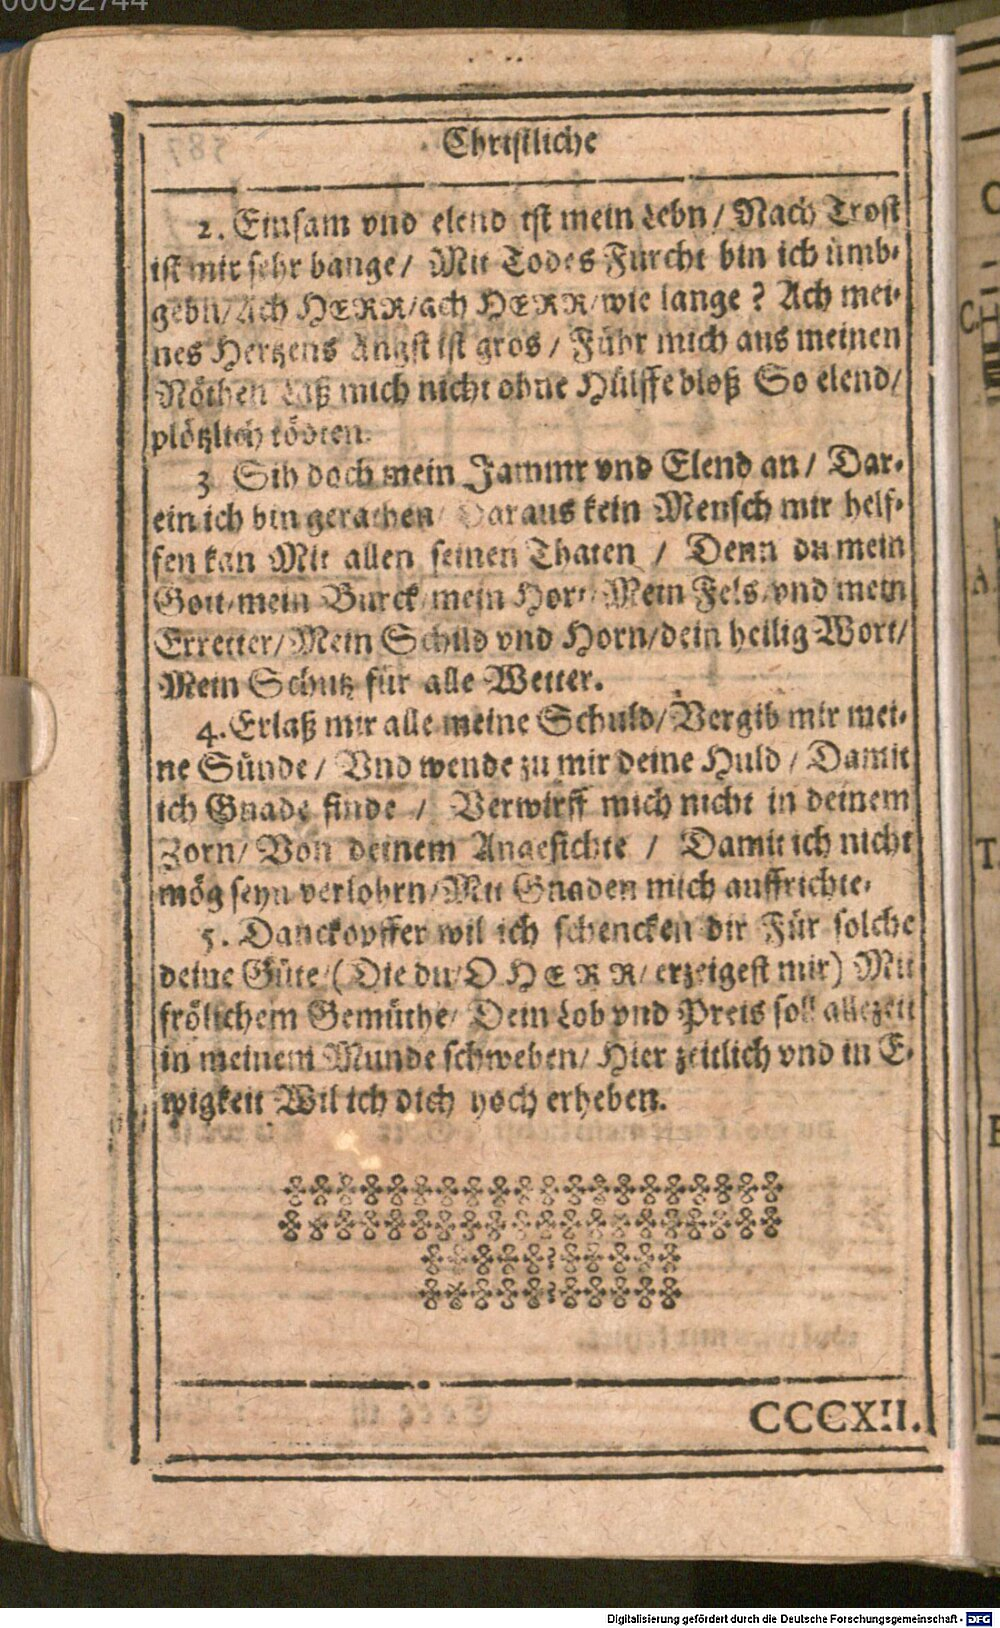 00092744
Christliche
2. Einsam vnd elend ist mein Lebn / Nach Trost
ist mir sehr bange / Mit Todes Furcht bin ich ümb-
gebn / Ach HERR / ach HERR / wie lange ? Ach mei-
nes Hertzens Angst ist gros / Führ mich aus meinen
Nöthen Laß mich nicht ohne Hülffe bloß So elend /
plötzlich tödten.
3 Sih doch mein Jammr vnd Elend an / Dar-
ein ich bin gerathen / Daraus kein Mensch mir helf-
fen kan Mit allen seinen Thaten / Denn du mein
Gott / mein Burck / mein Hort / Mein Fels / vnd mein
Erretter / Mein Schild vnd Horn / dein heilig Wort /
Mein Schutz für alle Wetter.
4. Erlaß mir alle meine Schuld / Vergib mir mei-
ne Sünde / Vnd wende zu mir deine Huld / Damit
ich Gnade finde / Verwirff mich nicht in deinem
Zorn / Von deinem Angesichte / Damit ich nicht
mög seyn verlohrn / Mit Gnaden mich auffrichte.
5. Danckopffer wil ich schencken dir Für solche
deine Güte / (Die du / O HERR / erzeigest mir) Mit
frölichem Gemüthe / Dein Lob vnd Preis soll allezeit
in meinem Munde schweben / Hier zeitlich vnd in E-
wigkeit Wil ich dich hoch erheben.
CCCXII.
Digitalisierung gefördert durch die Deutsche Forschungsgemeinschaft - DFG